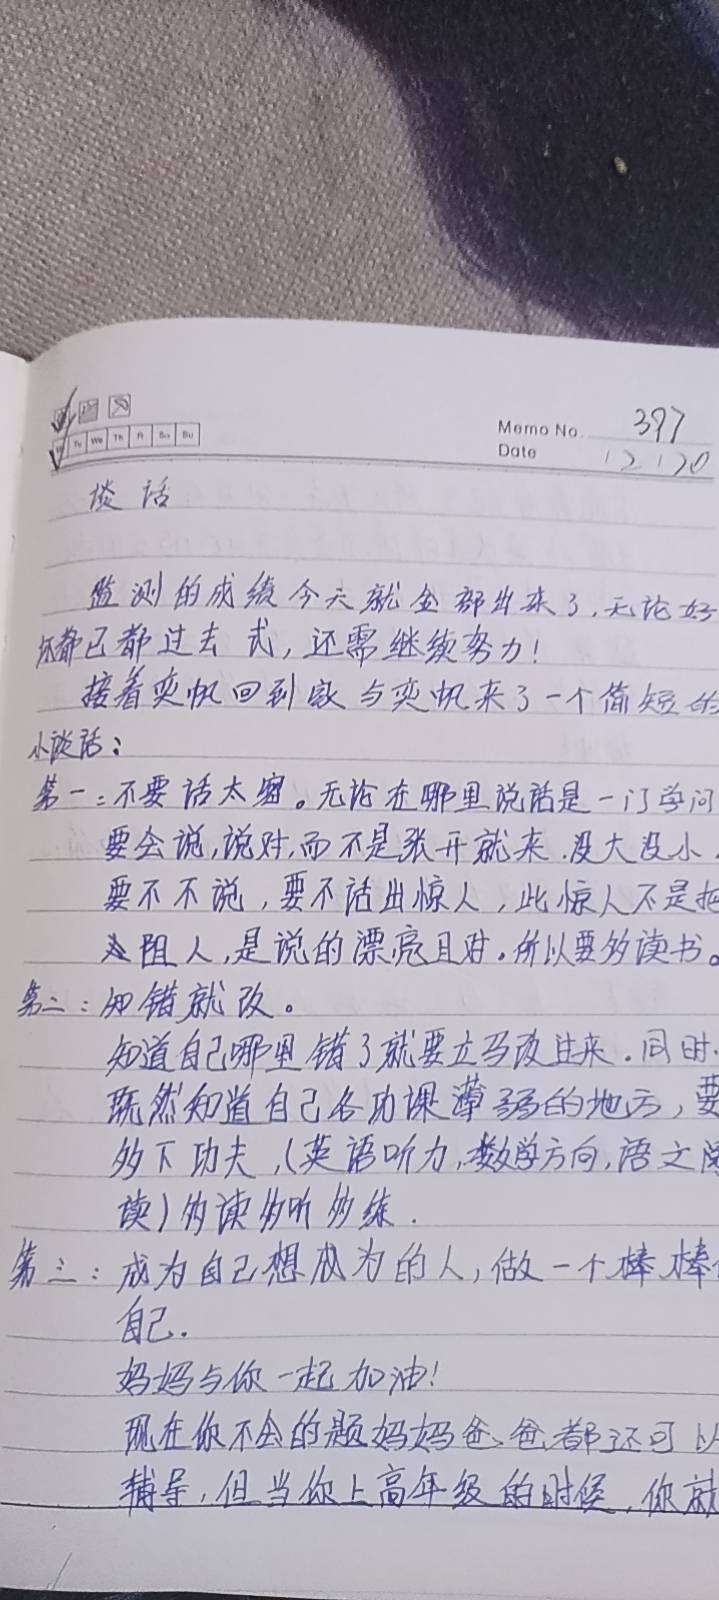 Memo No. 397
Mo Tu We Th Fr Sa Su
Date 12 / 20
谈话
监测的成绩今天就全部出来了,无论好
坏都已都过去式,还需继续努力!
接着奕帆回到家与奕帆来了一个简短的
小谈话:
第一:不要话太密。无论在哪里说话是一门学问
要会说,说对,而不是张开就来.没大没小.
要不不说,要不话出惊人,此惊人不是把
人阻人,是说的漂亮且对。所以要多读书。
第二:知错就改。
知道自己哪里错了就要立马改过来.同时.
既然知道自己各功课薄弱的地方,要
多下功夫,(英语听力,数学方向,语文阅
读)多读多听多练.
第三:成为自己想成为的人,做一个棒棒
自己.
妈妈与你一起加油!
现在你不会的题妈妈爸爸都还可以
辅导,但当你上高年级的时候,你就